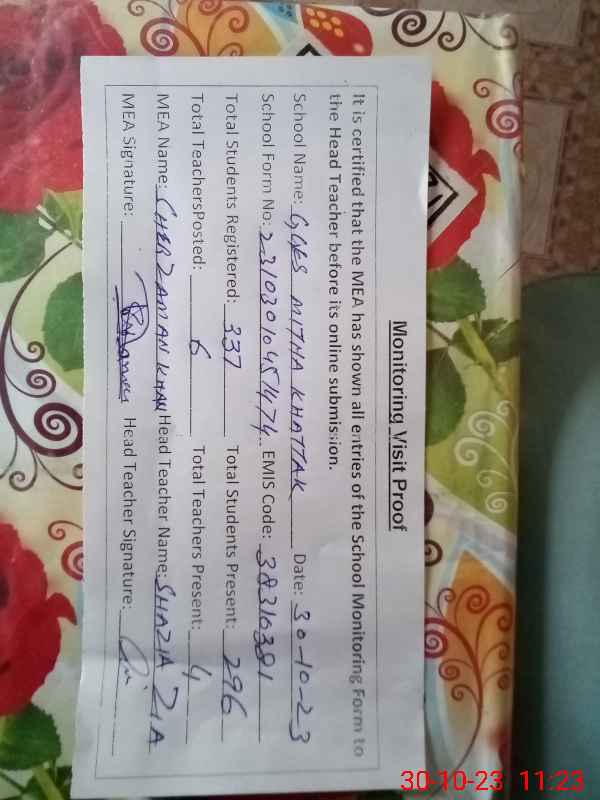 Monitoring Visit Proof
It is certified that the MEA has shown all entries of the School Monitoring Form to
the Head Teacher before its online submission.
School Name: GGES MITHA KHATTAK Date: 30-10-23
School Form No: 231030104451474 EMIS Code: 38310391
Total Students Registered: 337 Total Students Present: 296
Total TeachersPosted: 6 Total Teachers Present: 4
MEA Name: SHER ZAMAN KHAN Head Teacher Name: SHAZIA ZIA
MEA Signature: Head Teacher Signature:
30-10-23 11:23